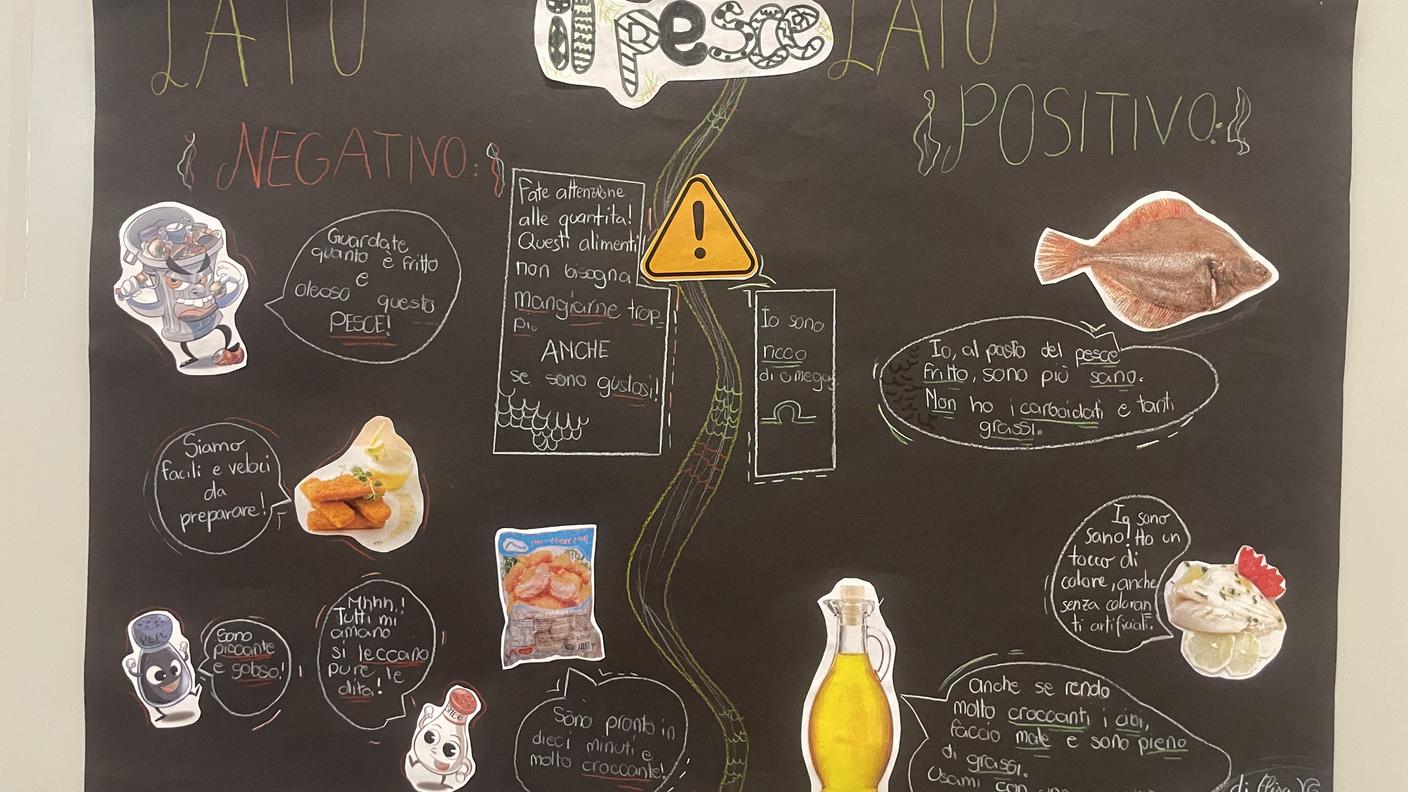 LATO
il pesce
LATO
NEGATIVO:
POSITIVO:
Guardate
quanto è fritto
e
oleoso questo
PESCE!
Fate attenzione
alle quantità!
Questi alimenti
non bisogna
mangiarne trop
po.
ANCHE
se sono gustosi!
Io sono
ricco
di omega3
Io, al posto del pesce
fritto, sono più sano.
Non ho i carboidati e tanti
grassi.
Siamo
facili e veloci
da
preparare!
Io sono
sano! Ho un
tocco di
colore, anche
senza coloran
ti artificiali.
Sono
piccante
e
Mhhh,!
Tutti mi
amano
si leccano
pure le
dita!
Sono pronto in
dieci minuti e
molto croccante!
Anche se rendo
molto croccanti i cibi,
faccio male e sono pieno
di grassi.
Usami con
di Elisa